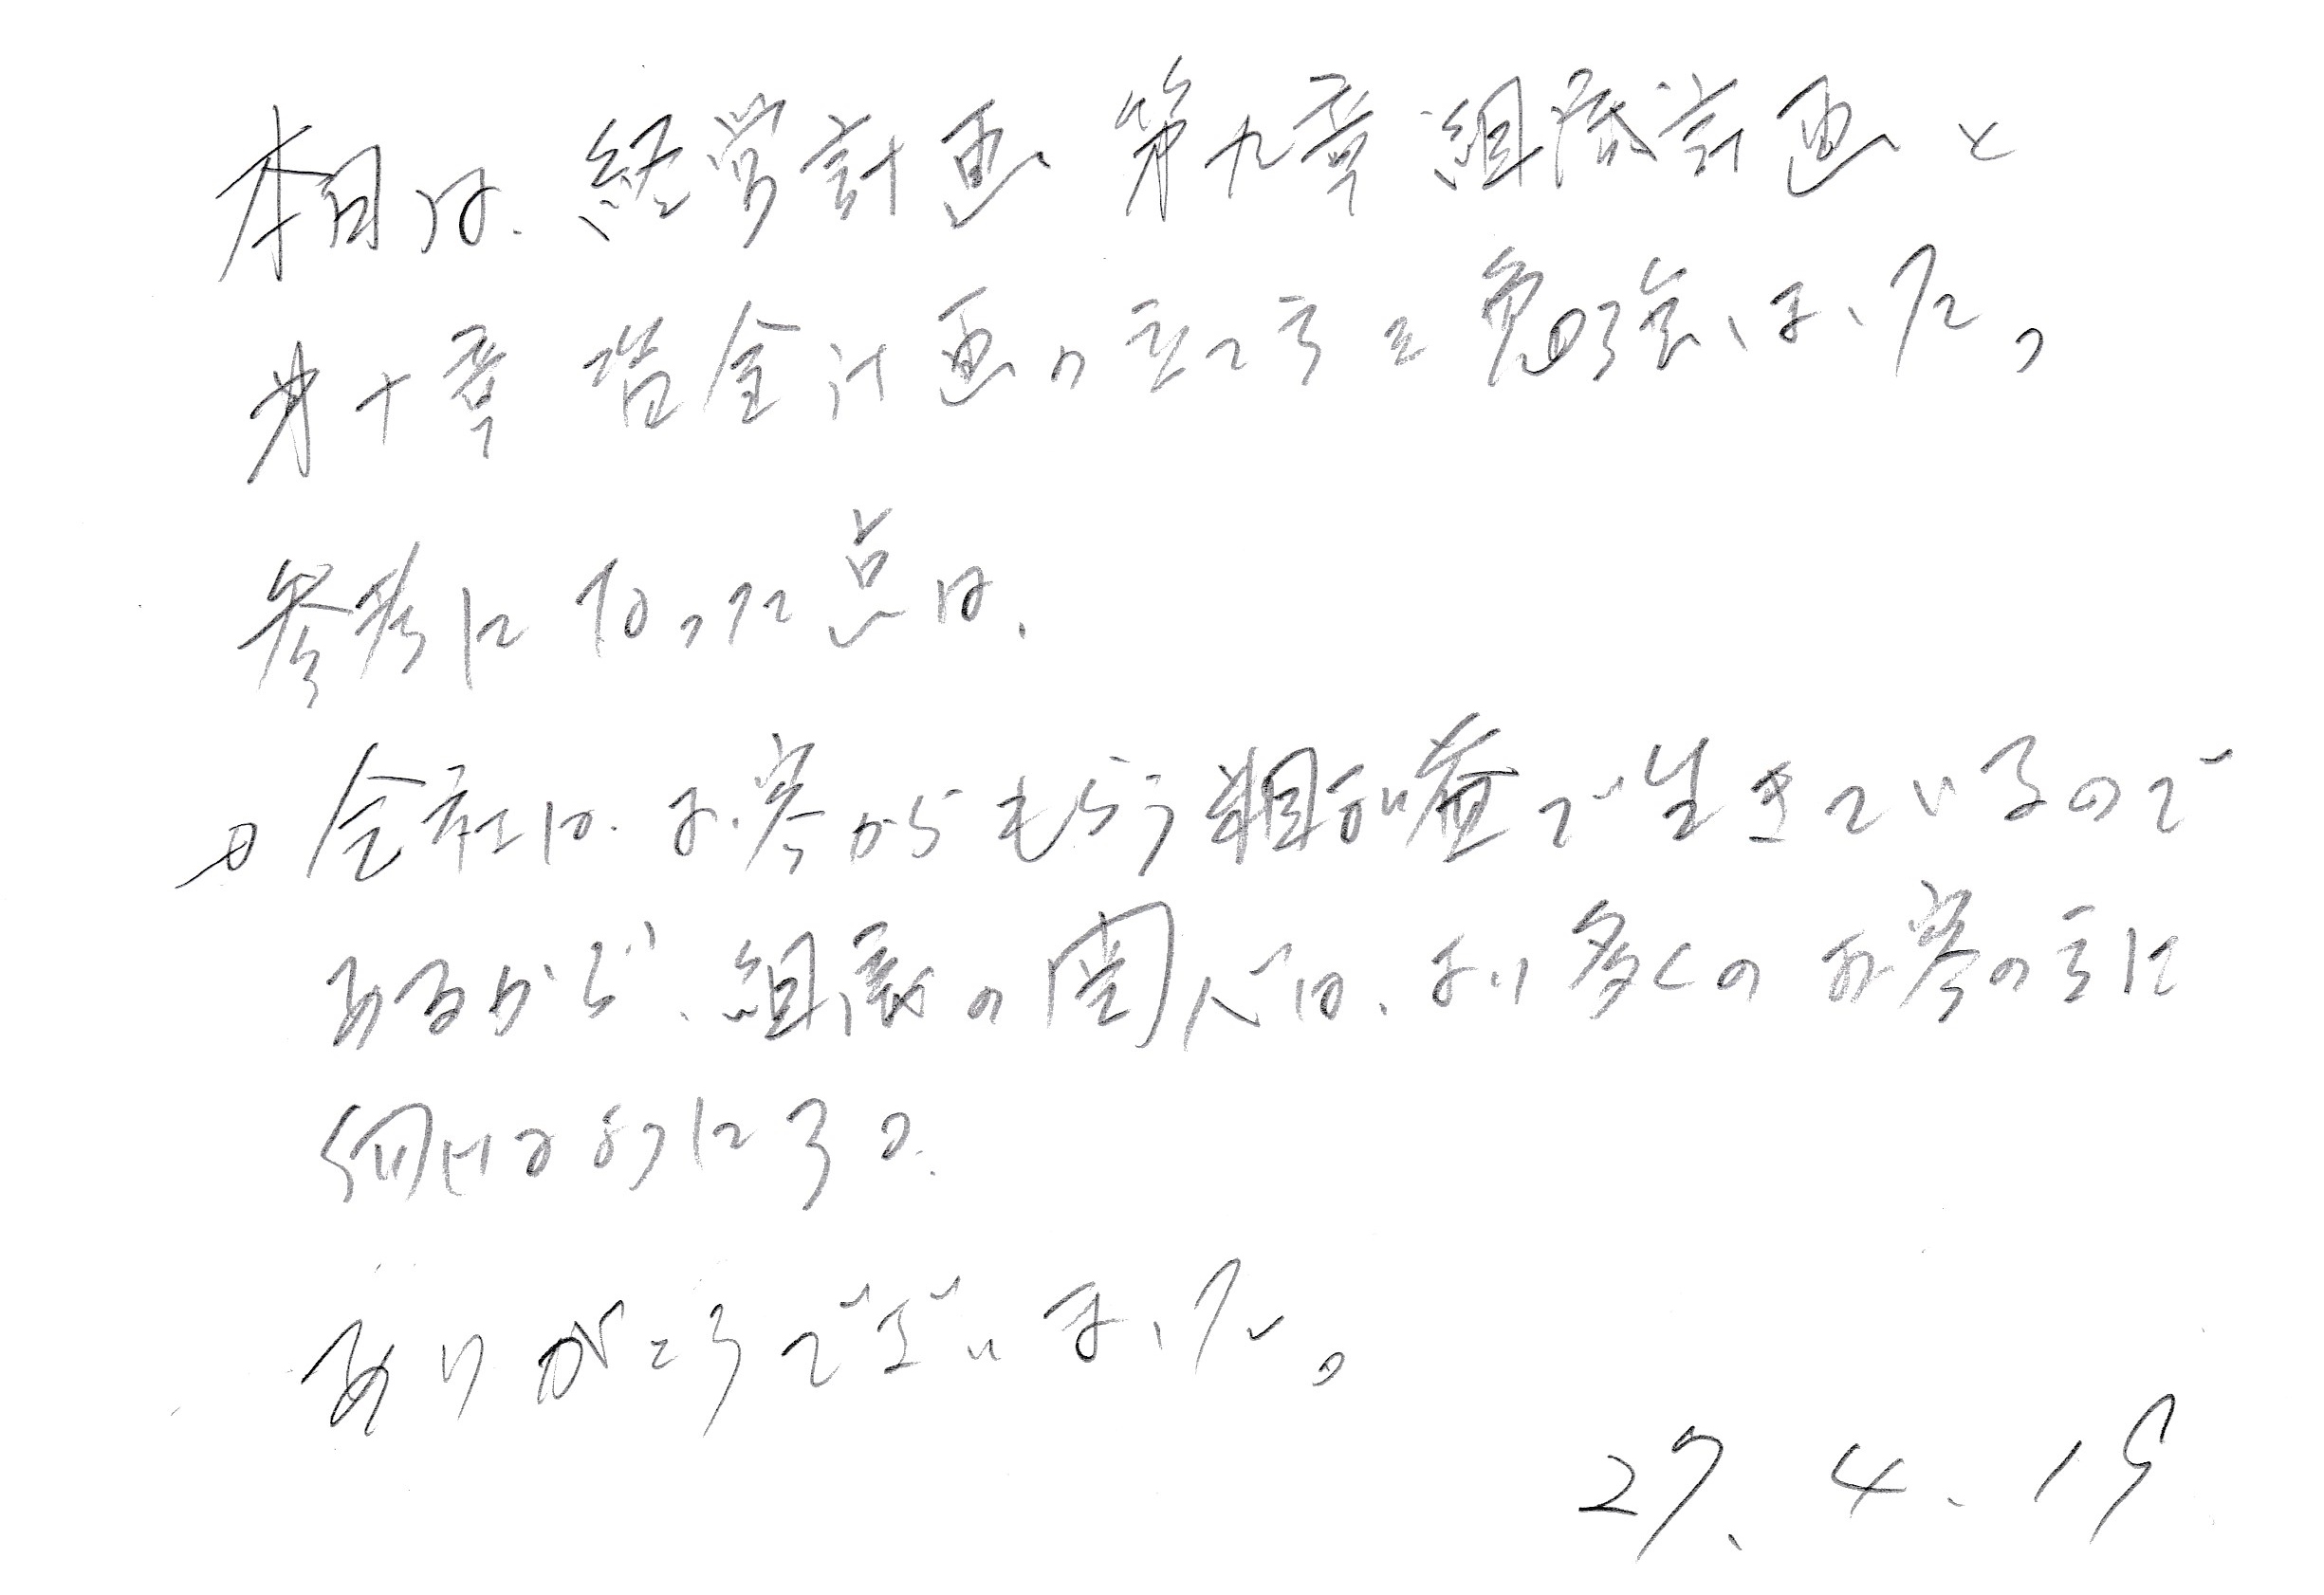 本日は、経営計画 第九章組織計画と
第十章 資金計画の立て方を勉強しました。
参考になった点は、
会社は、お客からもらう粗利益で生きているので
あるから、組織の関心は、より多くのお客の方に
向けるようにする。
ありがとうございました。
27.4.15